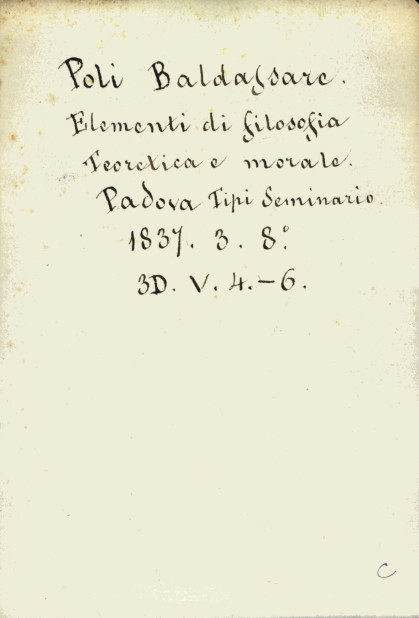 Poli Baldassare.
Elementi di filosofia
Teoretica e morale.
Padova Tipi Seminario.
1837. 3. 8.°
3D. V. 4.-6.
C